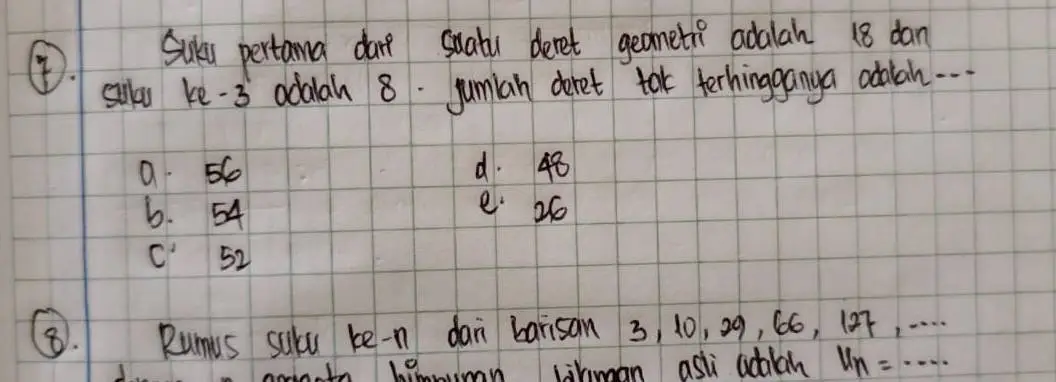 7. Suku pertama dari suatu deret geometri adalah 18 dan
suku ke-3 adalah 8. jumlah deret tak terhingganya adalah ---
a. 56
b. 54
c. 52
d. 48
e. 26
8. Rumus suku ke-n dari barisan 3, 10, 29, 66, 127, ....
anggota himpunan bilangan asli adalah Un = ....